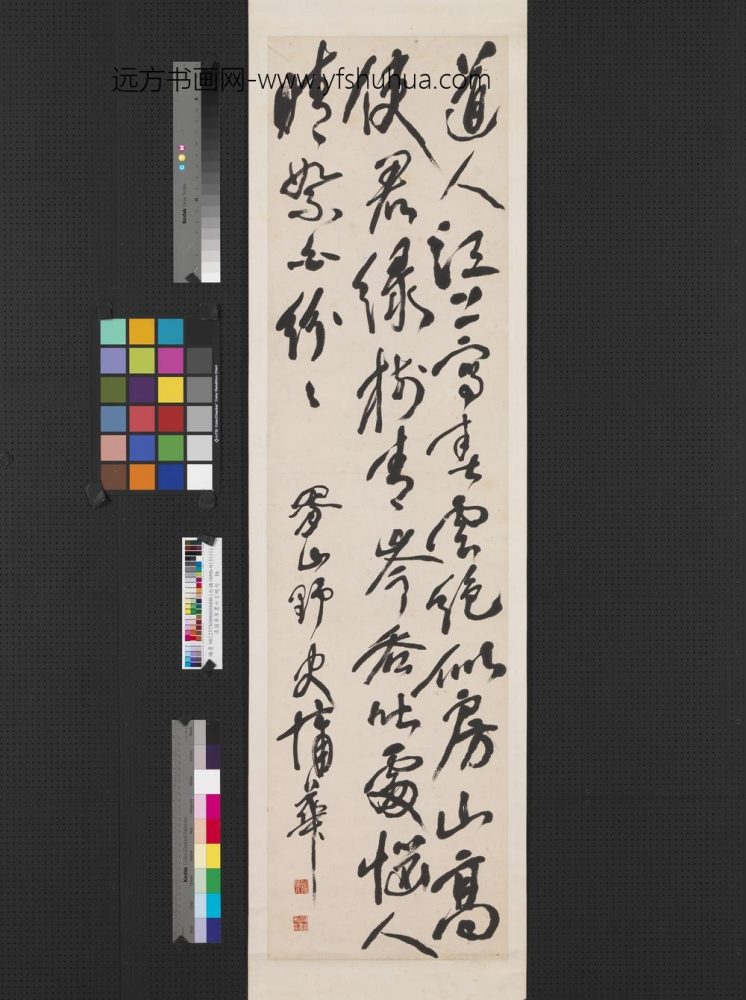 远方书画网-www.yfshuhua.com
道人江上寫春雲絕似房山高
使君綠樹青岑此處惱人
晴絮白紛〻
胥山野史蒲華